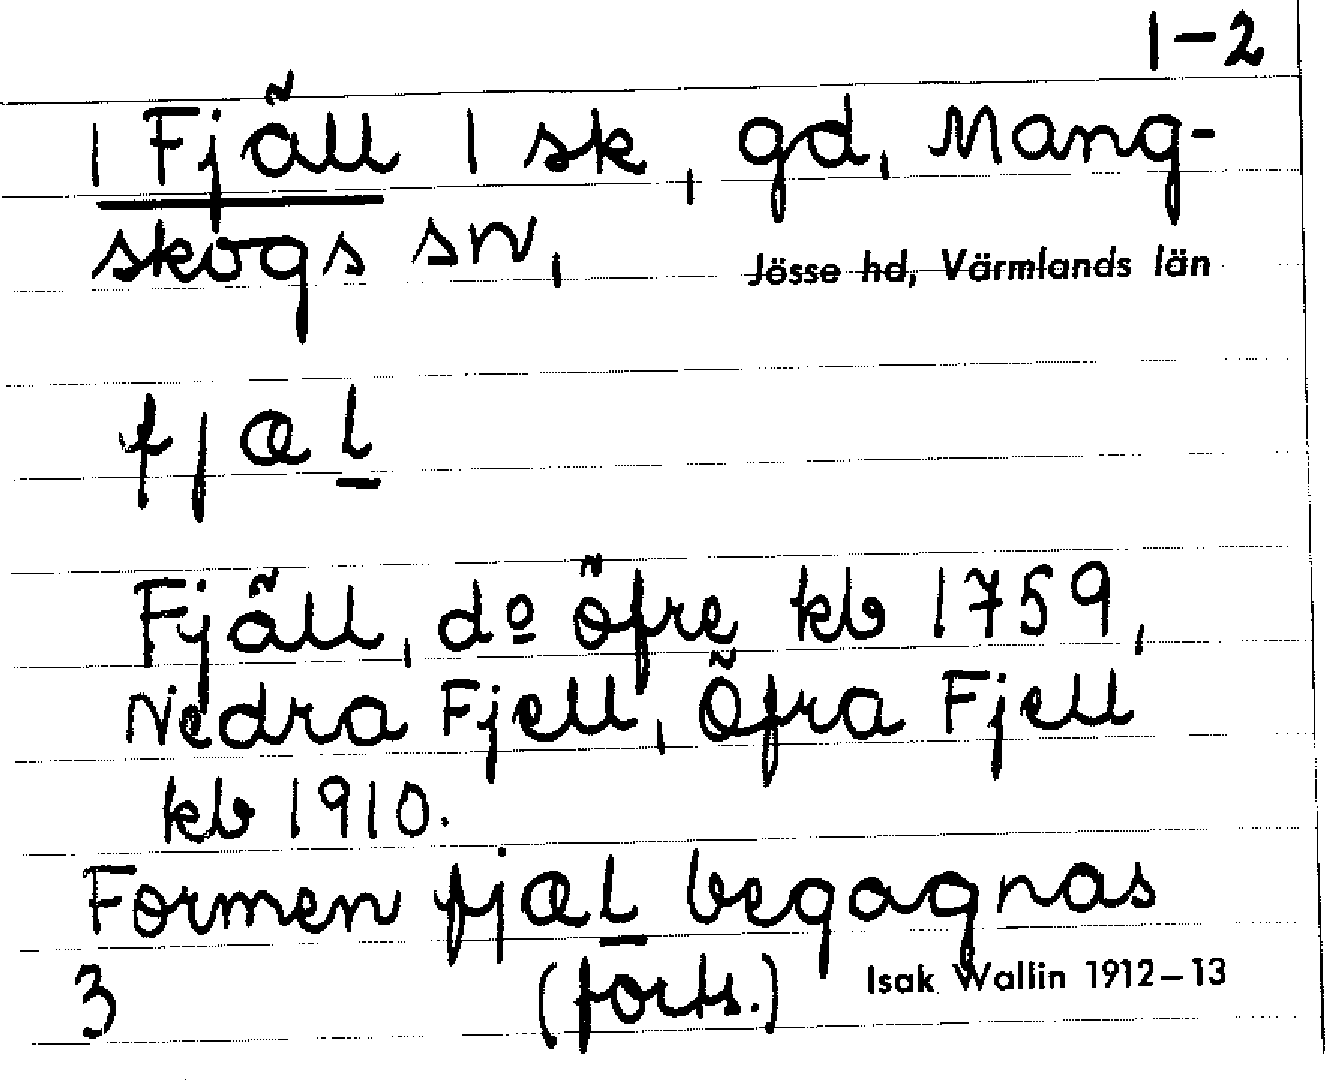 1-2
1 Fjäll 1 sk, gd, Mang-
skogs sn, Jösse hd, Värmlands län
fjæl
Fjäll, dº öfre kb 1759,
Nedra Fjell, Öfra Fjell
kb 1910.
Formen fjæl begagnas
3 (forts.) Isak Wallin 1912-13